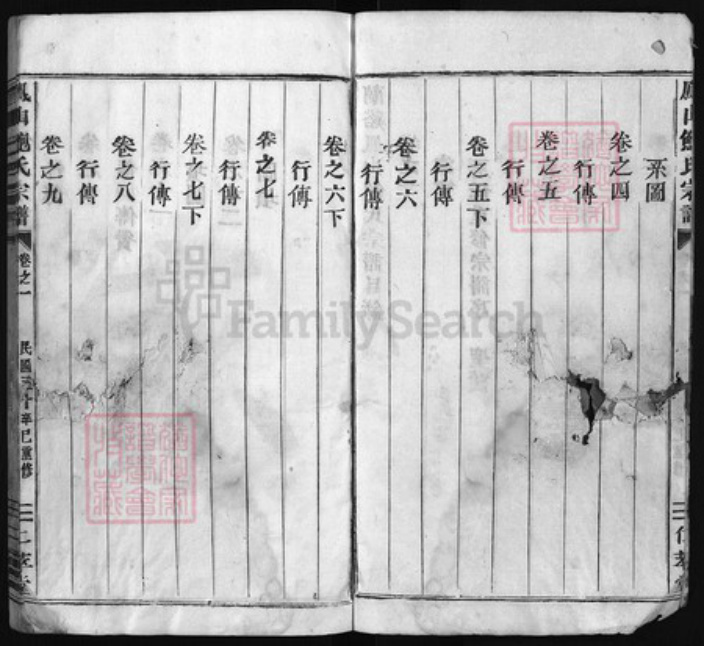 系圖
卷之四
行傳
卷之五
行傳
卷之五下
行傳
卷之六
行傳
卷之六下
行傳
卷之七
行傳
卷之七下
行傳
卷之八
行傳
卷之九
鮑氏宗譜
卷之一
民國三十辛巳重修
FamilySearch